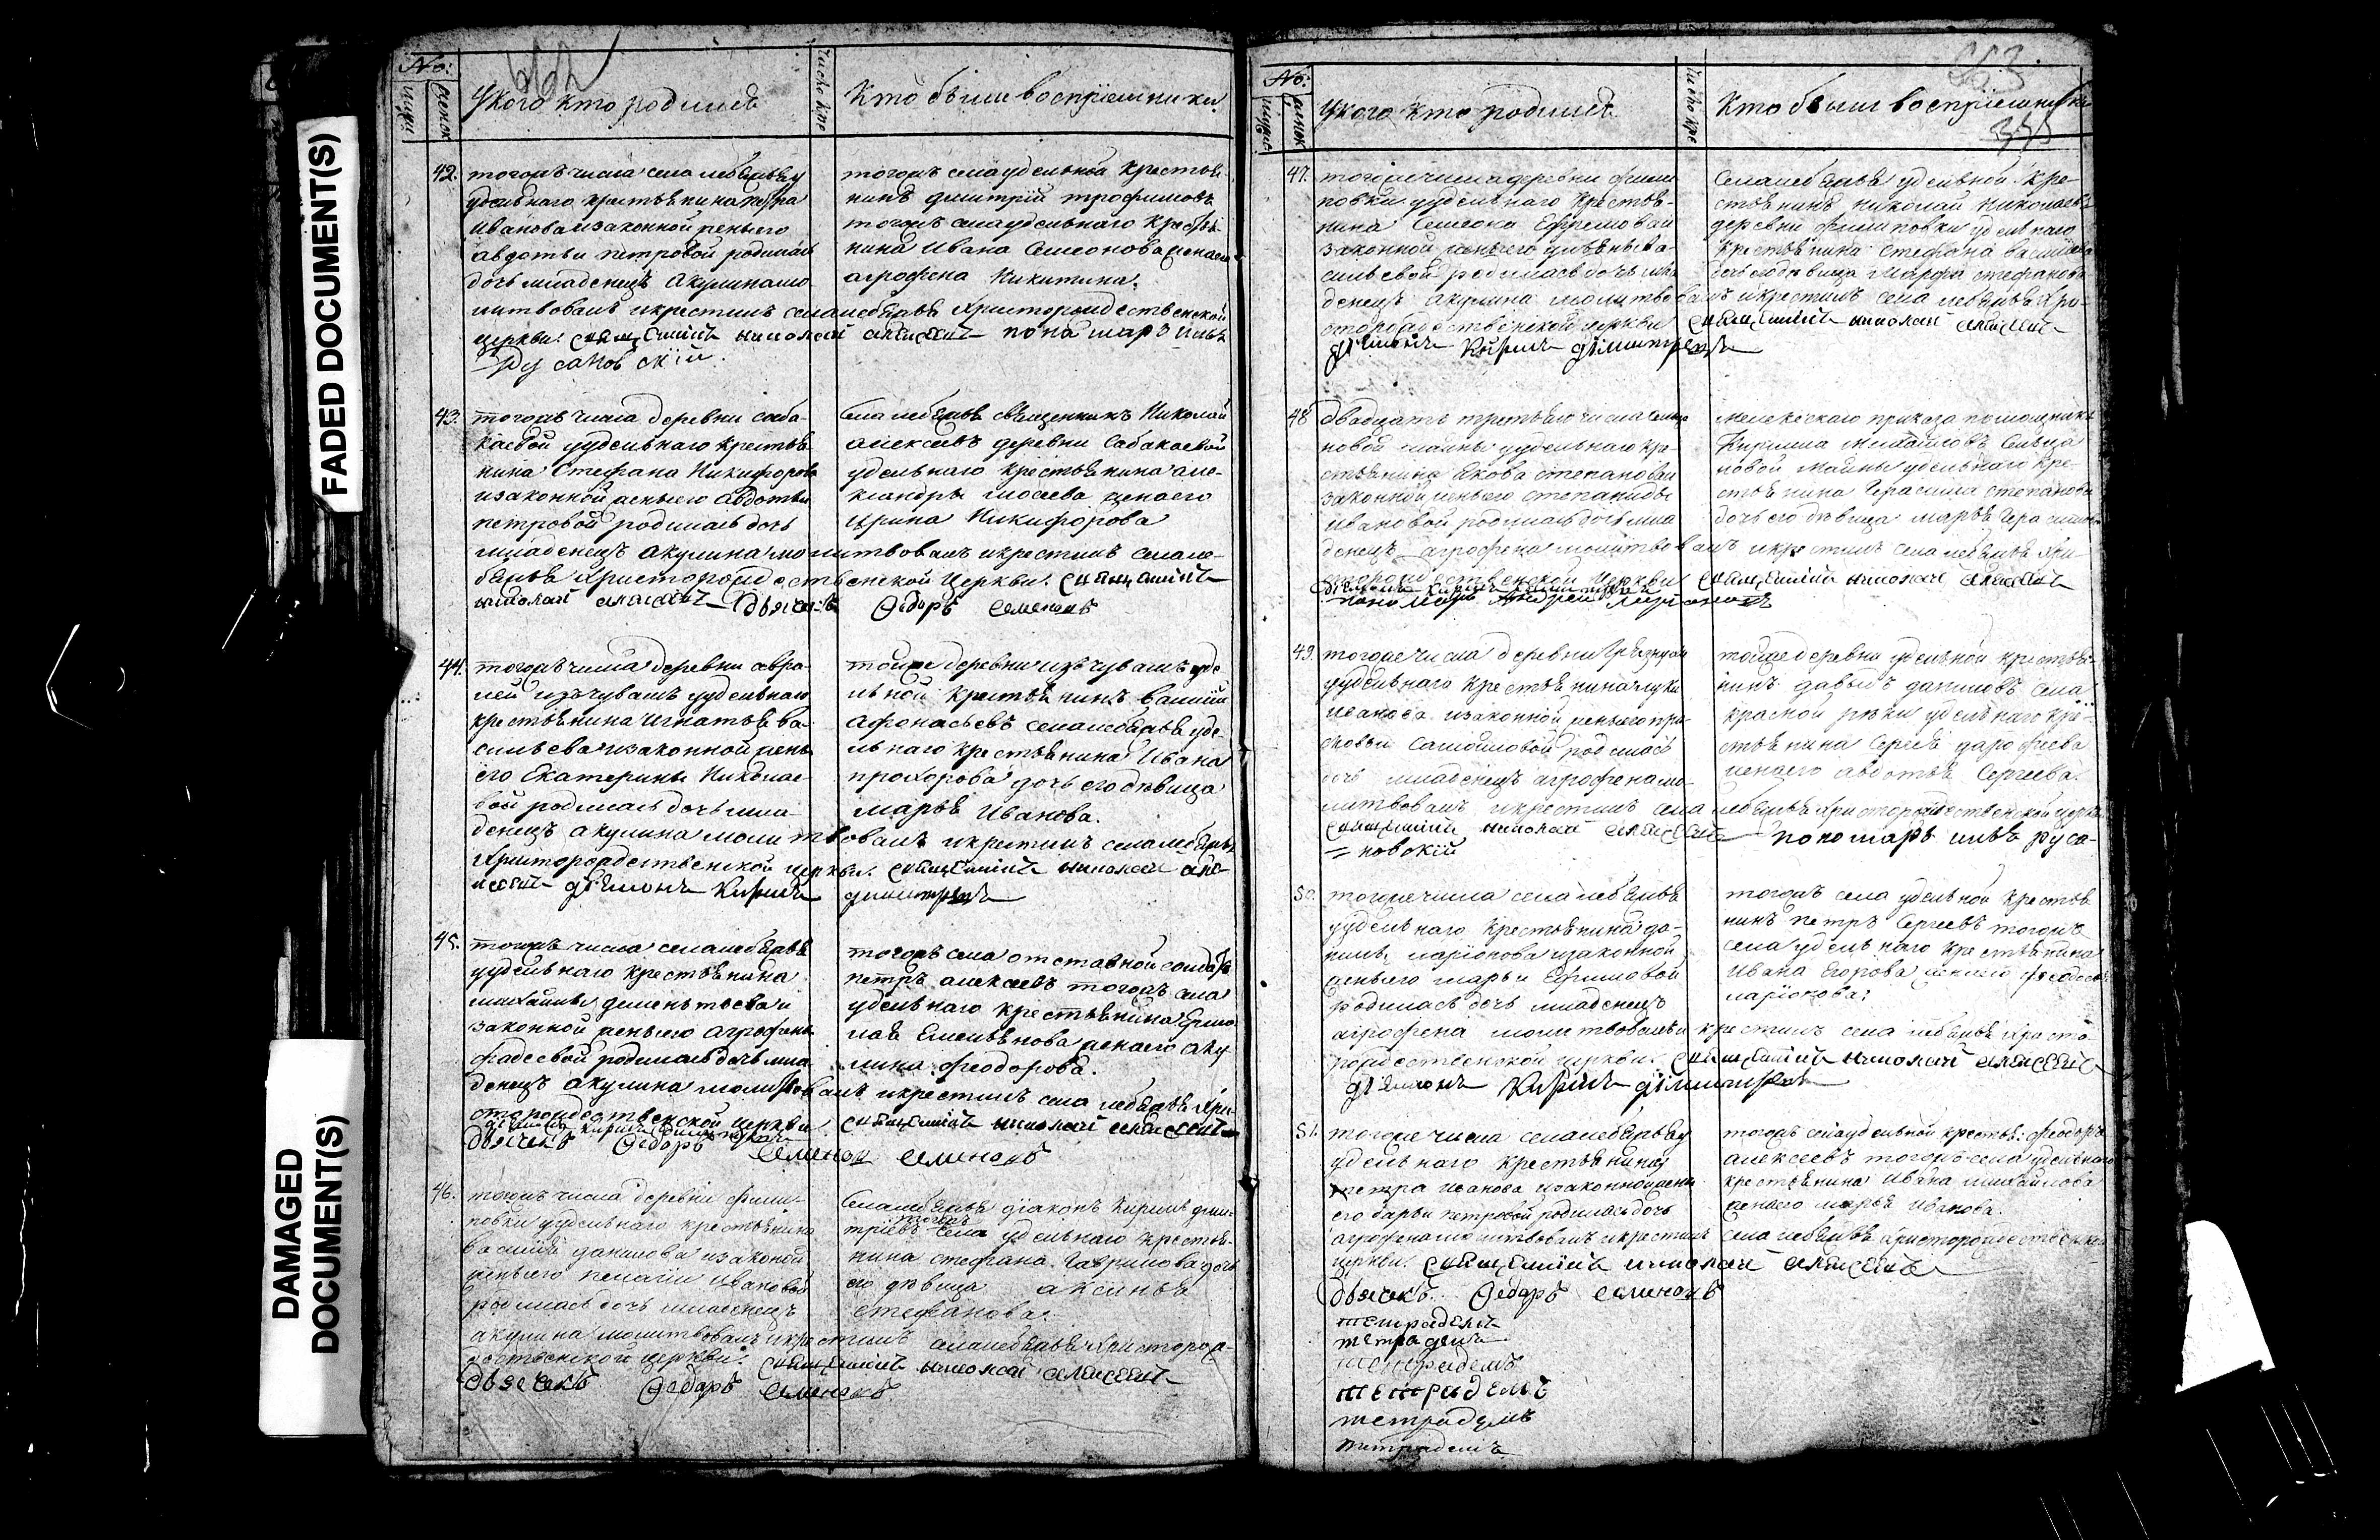 FADED DOCUMENT(S)
DAMAGED
DOCUMENT(S)
No:
женск
У кого кто родился
Число кре
Кто были восприемники
42. тогожъ числа села лебяжья у
удельнаго крестьянина петра
Иванова и законной жены его
авдотьи петровой родилась
дочь младенецъ Акулина мо
литвовалъ и крестилъ села лебяжья Христорождественской
церкви: священникъ николай алексеевъ пономарь илья
Русановскій.
тогожъ села удельной крестья
нинъ дмитрій трофимовъ
тогожъ села удельнаго крестья
нина Ивана Семенова жена его
агрофена Никитина.
43. тогожъ числа деревни саба-
каевой у удельнаго крестья
нина Стефана Никифорова
и законной жены его авдотьи
петровой родилась дочь
младенецъ акулина молитвовалъ и крестилъ села ле-
бяжья Христорождественской церкви: священникъ
николай алексеевъ Дьячекъ Федоръ Семеновъ
села лебяжья священникъ Николай
алексеевъ деревни Сабакаевой
удельнаго крестьянина але-
ксандры мосеева жена его
ирина Никифорова
44. тогожъ числа деревни авра-
лей изъ чувашъ у удельнаго
крестьянина игнатья ва-
сильева и законной жены
его Екатерины Николае-
вой родилась дочь мла-
денецъ акулина молитвовалъ и крестилъ села лебяжья
Христорождественской церкви: священникъ николай але-
ксеевъ діаконъ Кирилъ димитріевъ
тойже деревни изъ чувашъ уде
льной крестьянинъ василій
афонасьевъ села лебяжья уде-
льнаго крестьянина Ивана
прохорова дочь его девица
марья Иванова.
45. тогожъ числа села лебяжья
у удельнаго крестьянина
михайлы дементьева и
законной жены его агрофены
фадеевой родилась дочь мла
денецъ акулина молитвовалъ и крестилъ села лебяжья Хри-
сторождественской церкви: священникъ николай алексеевъ
діаконъ Кирилъ димитріевъ
Дьячекъ Федоръ Семенов Семеновъ
тогожъ села отставной солдатъ
петръ алексеевъ тогожъ села
удельнаго крестьянина Ермо
лая Емельянова жена его аку
лина феодорова.
46. тогожъ числа деревни фили-
повки у удельнаго крестьянина
василія данилова и законой
жены его пелагіи Ивановой
родилась дочь младенецъ
акулина молитвовалъ и крестилъ села лебяжья Христорож-
дественской церкви: священникъ николай алексеевъ
Дьячекъ Федоръ Семеновъ
села лебяжья діаконъ Кирилъ дими-
тогожъ
тріевъ села удельнаго крестья-
нина стефана Гаврилова дочь
его девица аксинья
стефанова.
663
No:
женск
У кого кто родился
Число кре
Кто были восприемники
47. тогоже числа деревни фили
повки у удельнаго крестья-
нина Семиона Ефремова и
законной жены его ульяны ва-
сильевой родилась дочь мла-
денецъ акулина молитвовалъ и крестилъ села лебяжья Хри-
сторождественской церкви священникъ николай алексеевъ
діаконъ Кирилъ димитріевъ
села лебяжья удельной кре-
стьянинъ николай николаевъ
деревни филиповки удельнаго
крестьянина стефана васильева
дочь его девица марфа стефанова
48 двадцать третьяго числа сельца
новой майны у удельнаго кре-
стьянина Якова степанова и
законной жены его степаниды
Ивановой родилась дочь мла
денецъ агрофена молитвовалъ и крестилъ села лебяжья Хри-
сторождественской церкви священникъ николай алексеевъ
діаконъ Кирилъ димитріевъ
пономарь Андрей
мелекескаго приказа помощникъ
Сельца
новой майны удельнаго кре-
стьянина Герасима степанова
дочь его девица марья Герасимова
49. тогоже числа деревни Грязнухи
у удельнаго крестьянина луки
иванова и законной жены его пра-
сковьи Самойловой родилась
дочь младенецъ агрофена мо-
литвовалъ и крестилъ села лебяжья Христорождественской церкви
священникъ николай алексеевъ пономарь илья руса-
= новскій
тойже деревни удельной крестья-
нинъ давыдъ даниловъ села
красной реки удельнаго кре-
стьянина Сергея дорофиева
жена его авдотья Сергеева.
50. тогоже числа села лебяжья
у удельнаго крестьянина да-
нилы ларіонова и законной
жены его марьи Ефимовой
родилась дочь младенецъ
агрофена молитвовалъ и крестилъ села лебяжья Христо-
рождественской церкви: священникъ николай алексеевъ
діаконъ Кирилъ димитріевъ
тогожъ села удельной крестья
нинъ петръ Сергеевъ тогожъ
села удельнаго крестьянина
Ивана Егорова жена его феодосья
ларіонова:
51. тогоже числа села лебяжья у
удельнаго крестьянина
петра иванова и законной жены
его дарьи петровой родилась дочь
агрофена молитвовалъ и крестилъ села лебяжья Христорождественской
церкви: священникъ николай алексеевъ
Дьячекъ Федоръ Семеновъ
тогожъ села удельной крестья: феодоръ
алексеевъ тогожъ села удельнаго
крестьянина Ивана михайлова
жена его марья Иванова.